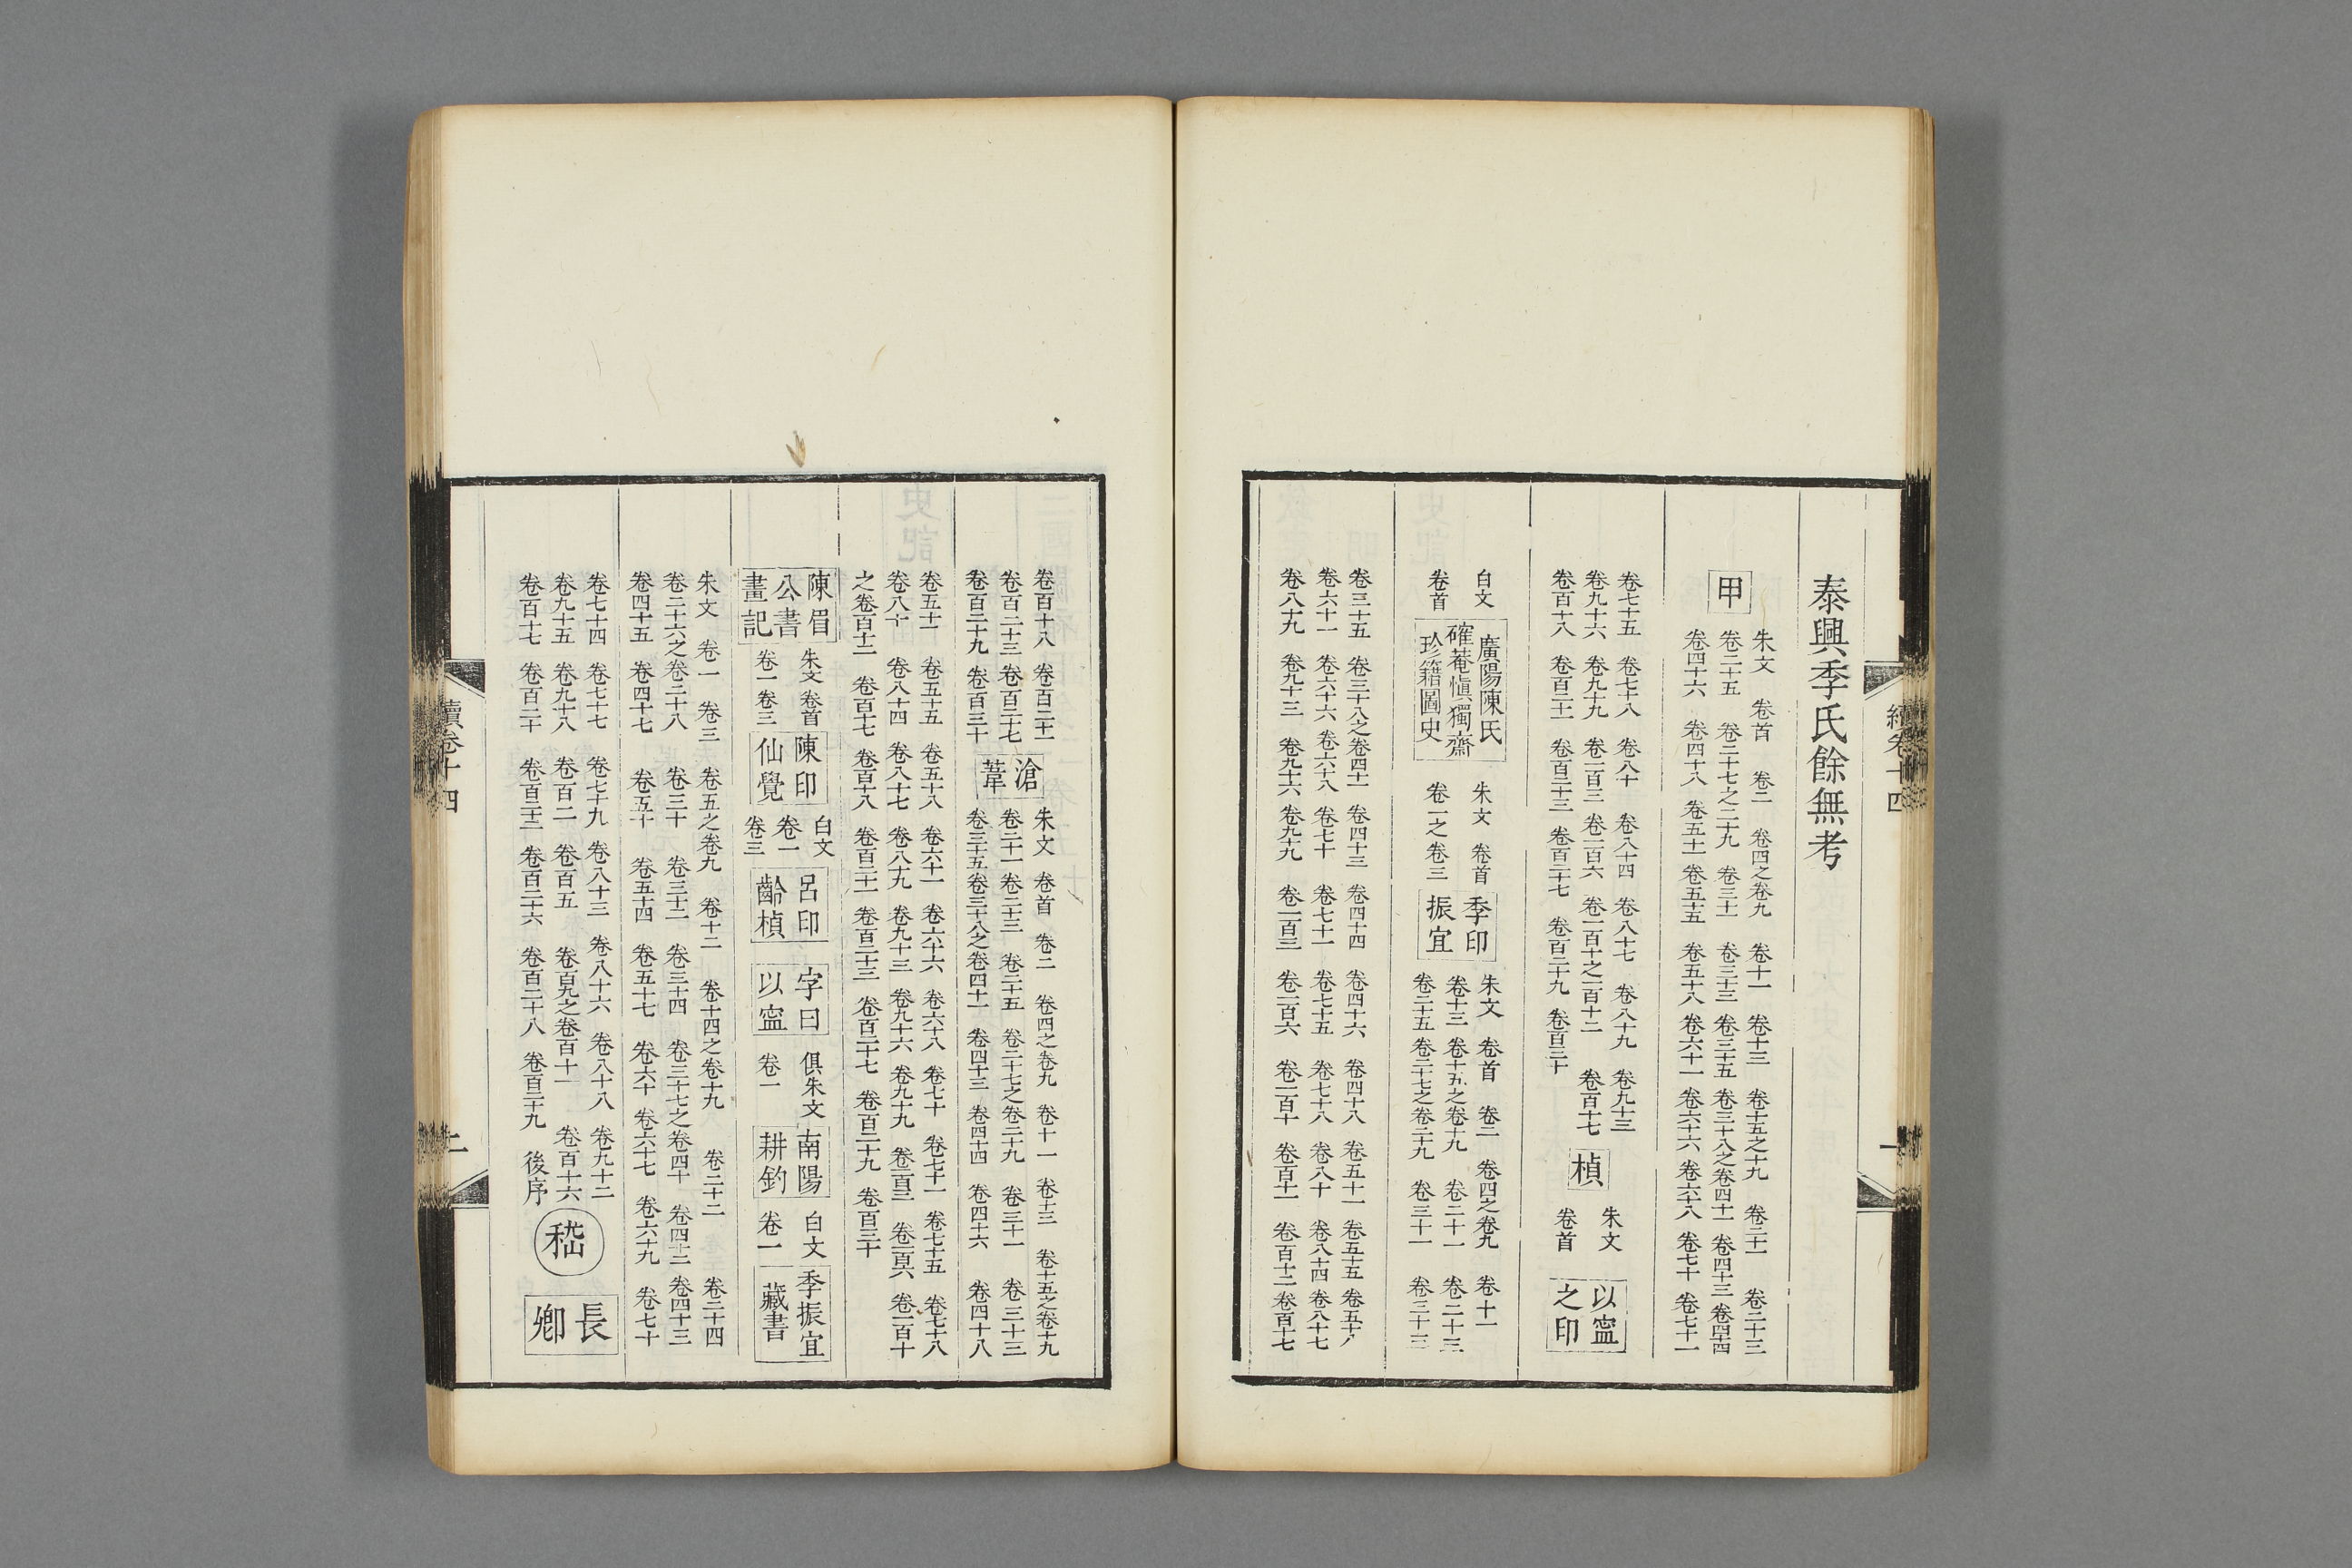 泰興季氏餘無考
甲
朱文 卷首 卷二 卷四之卷九 卷十一 卷十三 卷十五之十九 卷二十一 卷二十三
卷二十五 卷二十七之二十九 卷三十一 卷三十三 卷三十五 卷三十八之卷四十一 卷四十三 卷四十四
卷四十六 卷四十八 卷五十一 卷五十五 卷五十八 卷六十一 卷六十六 卷六十八 卷七十 卷七十一
卷七十五 卷七十八 卷八十 卷八十四 卷八十七 卷八十九 卷九十三
卷九十六 卷九十九 卷一百三 卷一百六 卷一百十之一百十二 卷百十七
卷百十八 卷百二十一 卷百二十三 卷百二十七 卷百二十九 卷百三十
楨
朱文
卷首
以寍
之印
白文
卷首
廣陽陳氏
確菴愼獨齋
珍籍圖史
朱文 卷首
卷一之卷三
季印
振宜
朱文 卷首 卷二 卷四之卷九 卷十一
卷十三 卷十五之卷十九 卷二十一 卷二十三
卷二十五 卷二十七之卷二十九 卷三十一 卷三十三
卷三十五 卷三十八之卷四十一 卷四十三 卷四十四 卷四十六 卷四十八 卷五十一 卷五十五 卷五十八
卷六十一 卷六十六 卷六十八 卷七十 卷七十一 卷七十五 卷七十八 卷八十 卷八十四 卷八十七
卷八十九 卷九十三 卷九十六 卷九十九 卷一百三 卷一百六 卷一百十 卷百十一 卷百十二 卷百十七
續卷十四
一
卷百十八 卷百二十一
卷百二十三 卷百二十七
卷百二十九 卷百三十
滄
葦
朱文 卷首 卷二 卷四之卷九 卷十一 卷十三 卷十五之卷十九
卷二十一 卷二十三 卷二十五 卷二十七之卷二十九 卷三十一 卷三十三
卷三十五 卷三十八之卷四十一 卷四十三 卷四十四 卷四十六 卷四十八
卷五十一 卷五十五 卷五十八 卷六十一 卷六十六 卷六十八 卷七十 卷七十一 卷七十五 卷七十八
卷八十 卷八十四 卷八十七 卷八十九 卷九十三 卷九十六 卷九十九 卷一百三 卷一百六 卷一百十
之卷百十二 卷百十七 卷百十八 卷百二十一 卷百二十三 卷百二十七 卷百二十九 卷百三十
陳眉
公書
畫記
朱文 卷首
卷一 卷三
陳印
仙覺
白文
卷一
卷三
呂印
齡楨
字曰
以寍
俱朱文
卷一
南陽
耕釣
白文
卷一
季振宜
藏書
朱文 卷一 卷三 卷五之卷九 卷十二 卷十四之卷十九 卷二十二 卷二十四
卷二十六之卷二十八 卷三十 卷三十二 卷三十四 卷三十七之卷四十 卷四十二 卷四十三
卷四十五 卷四十七 卷五十 卷五十四 卷五十七 卷六十 卷六十七 卷六十九 卷七十
卷七十四 卷七十七 卷七十九 卷八十三 卷八十六 卷八十八 卷九十二
卷九十五 卷九十八 卷百二 卷百五 卷百九之卷百十一 卷百十六
卷百十七 卷百二十 卷百二十二 卷百二十六 卷百二十八 卷百二十九 後序
嵇
長
卿
續卷十四
二